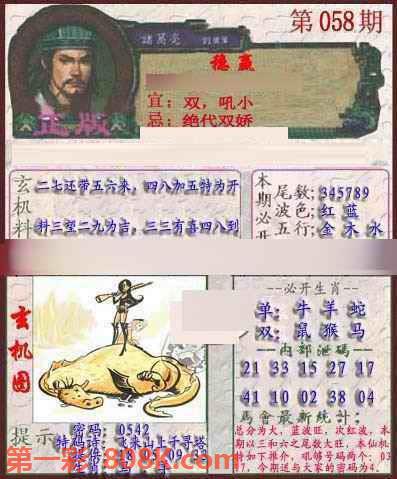 第058期
諸葛亮
稳赢
宜：双，吼小
忌：绝代双娇
正版
玄机料
二七还带五六来，四八加五特为开
料三望二九为吉，三三有喜四八到
本期必开
尾数：345789
波色：红 蓝
五行：金 木 水
玄机图
必开生肖
单：牛 羊 蛇
双：鼠 猴 马
内部泄码
21 33 15 27 17
41 10 02 38 04
馬會最新統计：
总分为大，蓝波旺，次红波，本
期以三和六之尾数大旺，本仙机
提示
密码：0542
特码诗：飞来山上千寻塔
第一彩：808K.com